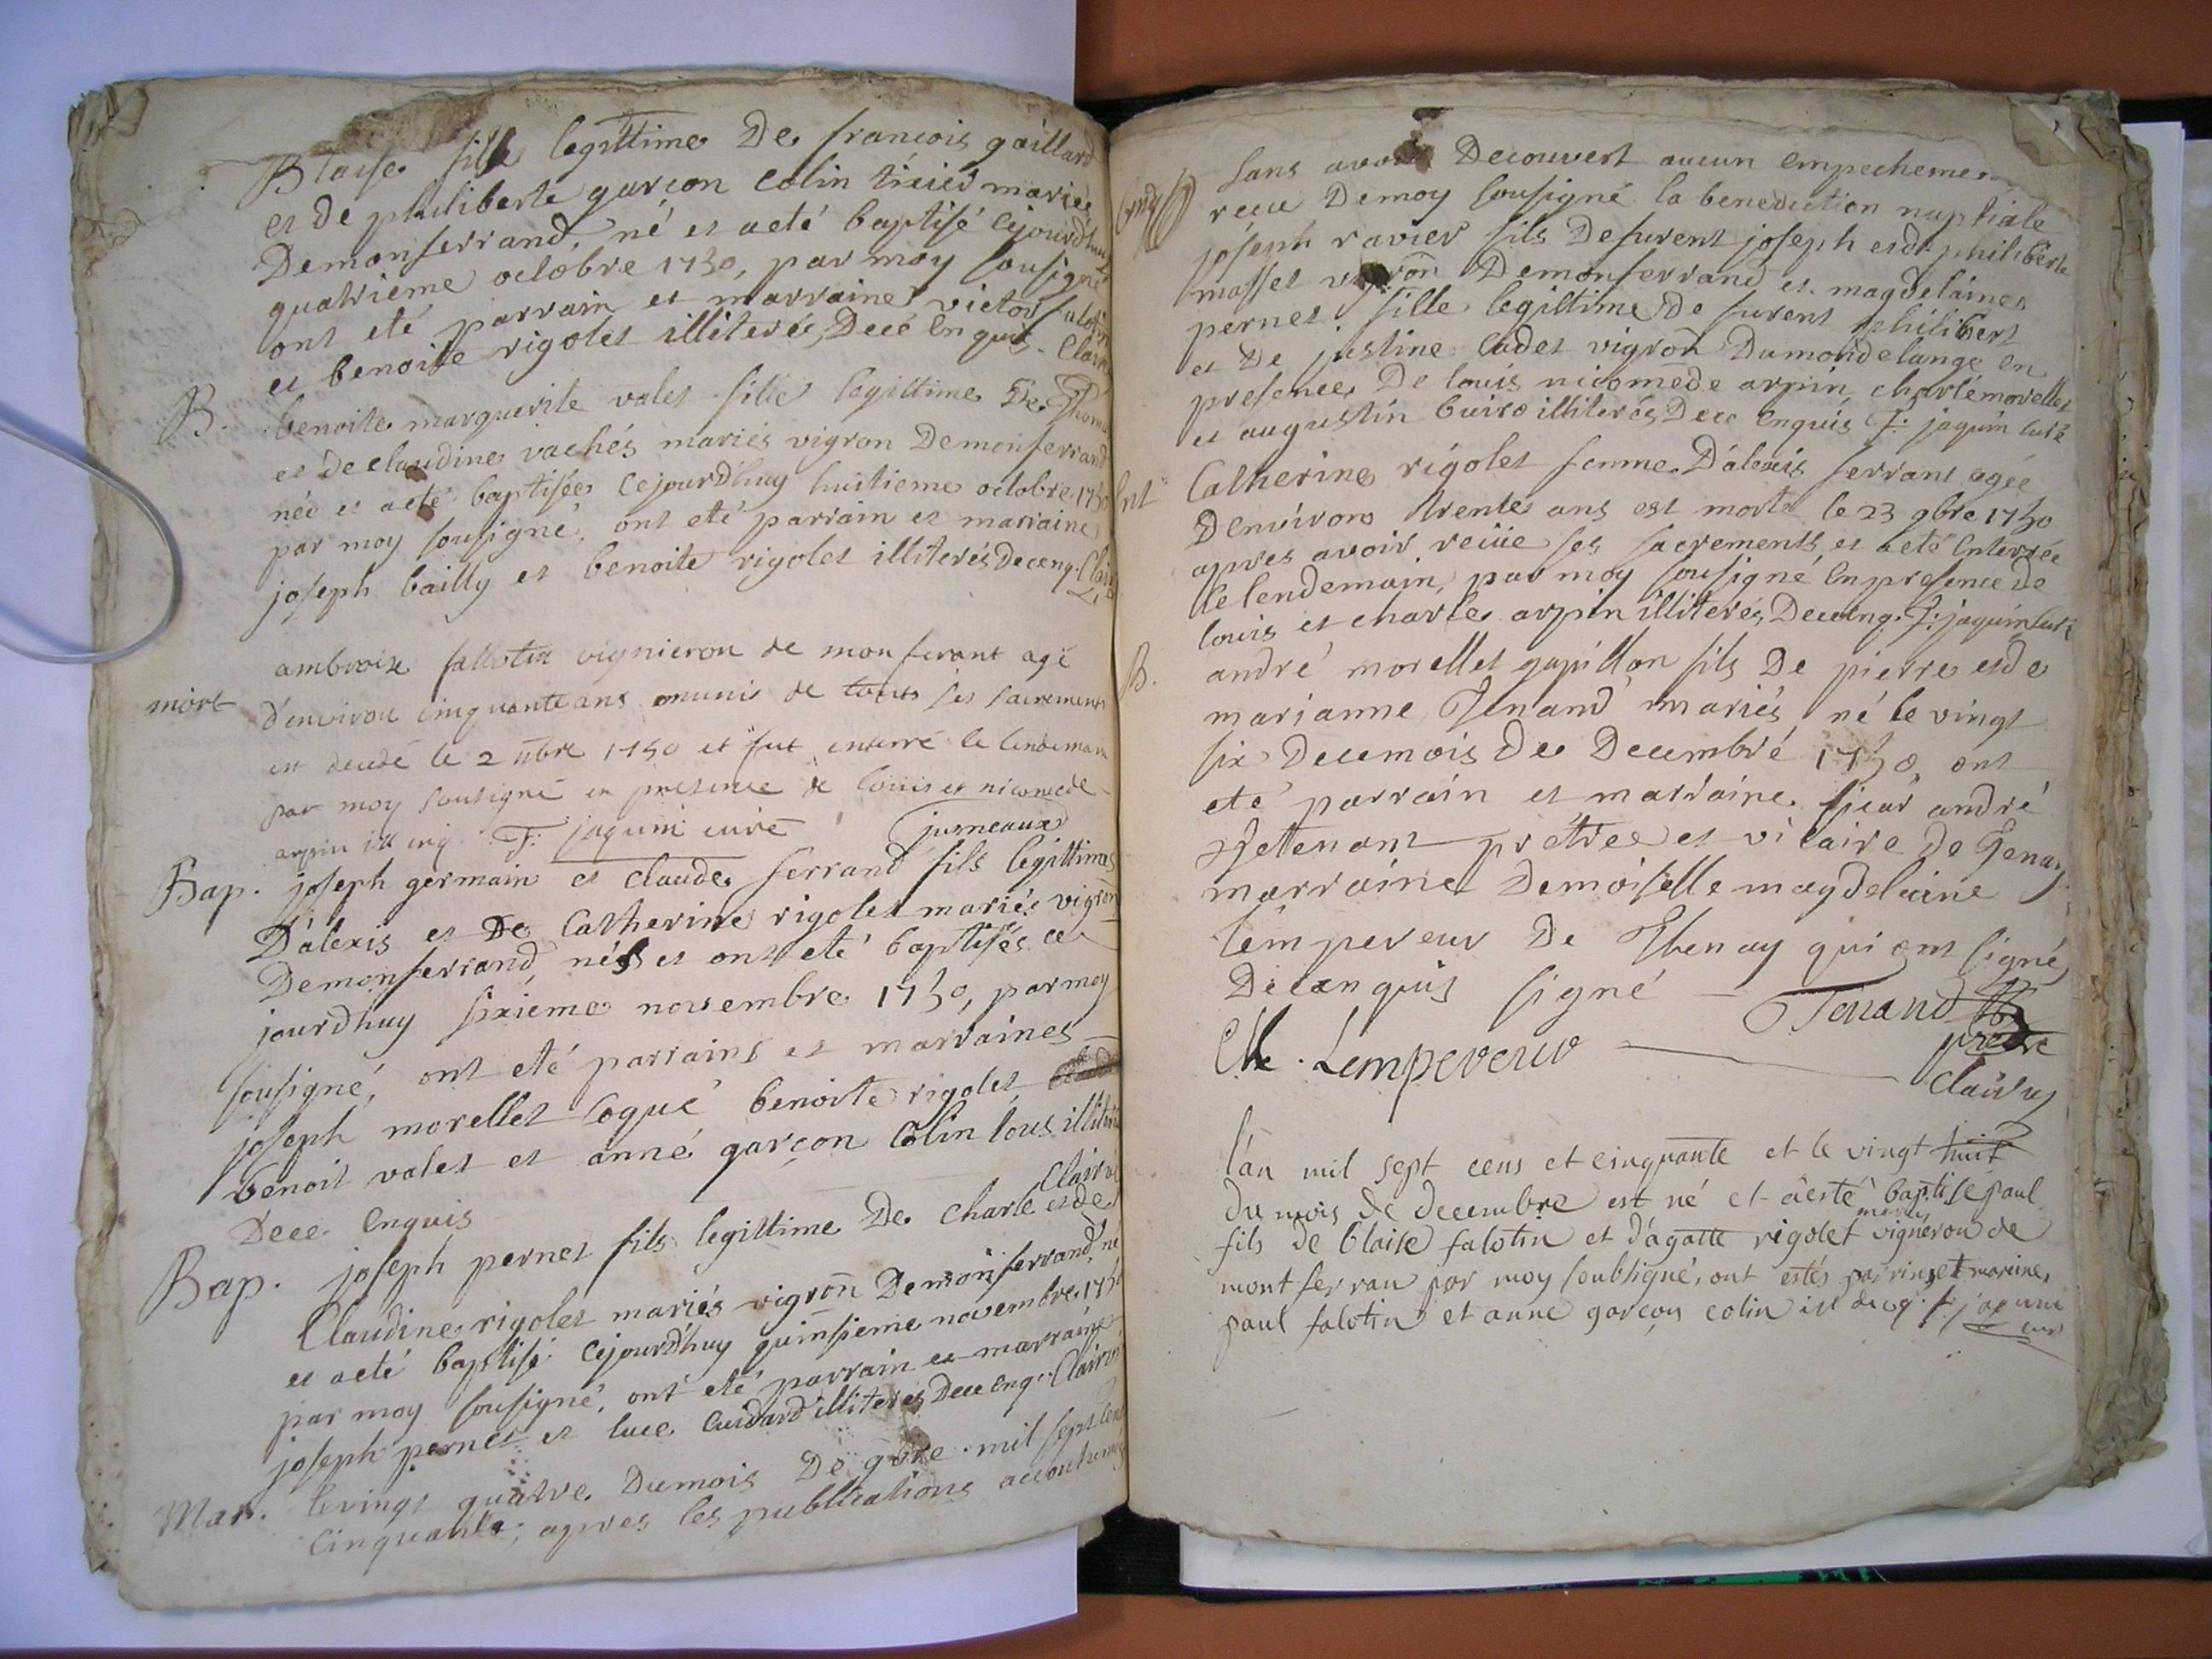 Blaise fils legittime De francois gaillard
et de philiberte garcon colin tixier mariés
Demonferrand, né et aeté baptisé cejourdhuy
quatrieme octobre 1750, par moy sousigné
ont eté parrain et marraine victor falotin
et benoite rigolet illiterés, Dece enquis. Clair
B. benoite marguerite valet fille legittime De Thomas
et declaudine vachés mariés vigron Demonferrand
née et aeté baptisée cejourdhuy huitieme octobre 1750
par moy sousigné, ont eté parrain et marraine
joseph bailly et benoite rigolet illiterés Deceng. Clair
mort
ambroix fallotin vignieron de monferant agé
d'environ cinquante ans munis de touts ses sacrements
est decedé le 2 nbre 1750 et fut enterré le lendemain
par moy sousigné en presence de louis et nicomede
arpin ill enq. F: jaquin curé
jumeaux
Bap. joseph germain et claude ferrand fils legittimes
D'alexis et De Catherine rigolet mariés vigron
Demonferrand, nés et ont eté baptisés ce
jourdhuy sixieme novembre 1750, par moy
sousigné, ont eté parrains et marraines
joseph morellet coqué benoite rigolet
benoit valet et anné garçon Colin tous illiterés
Dece. Enquis
Clair
Bap. joseph pernet fils legittime De charle et de
Claudine rigolet mariés vigron Demonferrand, né
et aeté baptisé cejourdhuy quinsieme novembre 1750
par moy sousigné, ont eté parrain et marraine
joseph pernet et luce cuidard illiterés Dece enq. Clair
Mar. levingt quatre Dumois De 9bre mil sept cens
Cinquante, apres les publications accoutumés
sans avoir Decouvert aucun empechement
reçue Demoy sousigné la benediction nuptiale
joseph ravier fils Defurent joseph et de philiberte
masset vigron Demonferrand et magdelaine
pernet fille legittime De furent philibert
et De justine Cadet vigron Dumondelange en
presence De louis nicomede arpin, charle morellet
et augustin buiro illiterés Dece enquis F: jaquin curé
Ent
Catherine rigolet femme D'alexis ferrant agée
Denviron trente ans est morte le 23 9bre 1750
apres avoir reçüe ses sacrements et aeté enterrée
le lendemain, par moy sousigné en presence de
louis et charle arpin illiterés, Dece enq. F: jaquin curé
B. andré morellet papillon fils De pierre et de
marianne Tenand mariés né le vingt
six Decemois De Decembré 1750, ont
eté parrain et marraine sieur andré
prétre et vicaire De Jenay
marraine Demoiselle magdelaine
lempereur De Thenay qui ont signé
Decenquis signé — Tenand
prêtre
Lempereur
l'an mil sept cens et cinquante et le vingt huit
du mois de decembre est né et à esté baptisé paul
fils de blaise falotin et d'agatte rigolet mariés vigneron de
montferran por moy soubsigné, ont estés parrins et marines
paul falotin et anne garçon colin ill decq. F: jaquin
curé